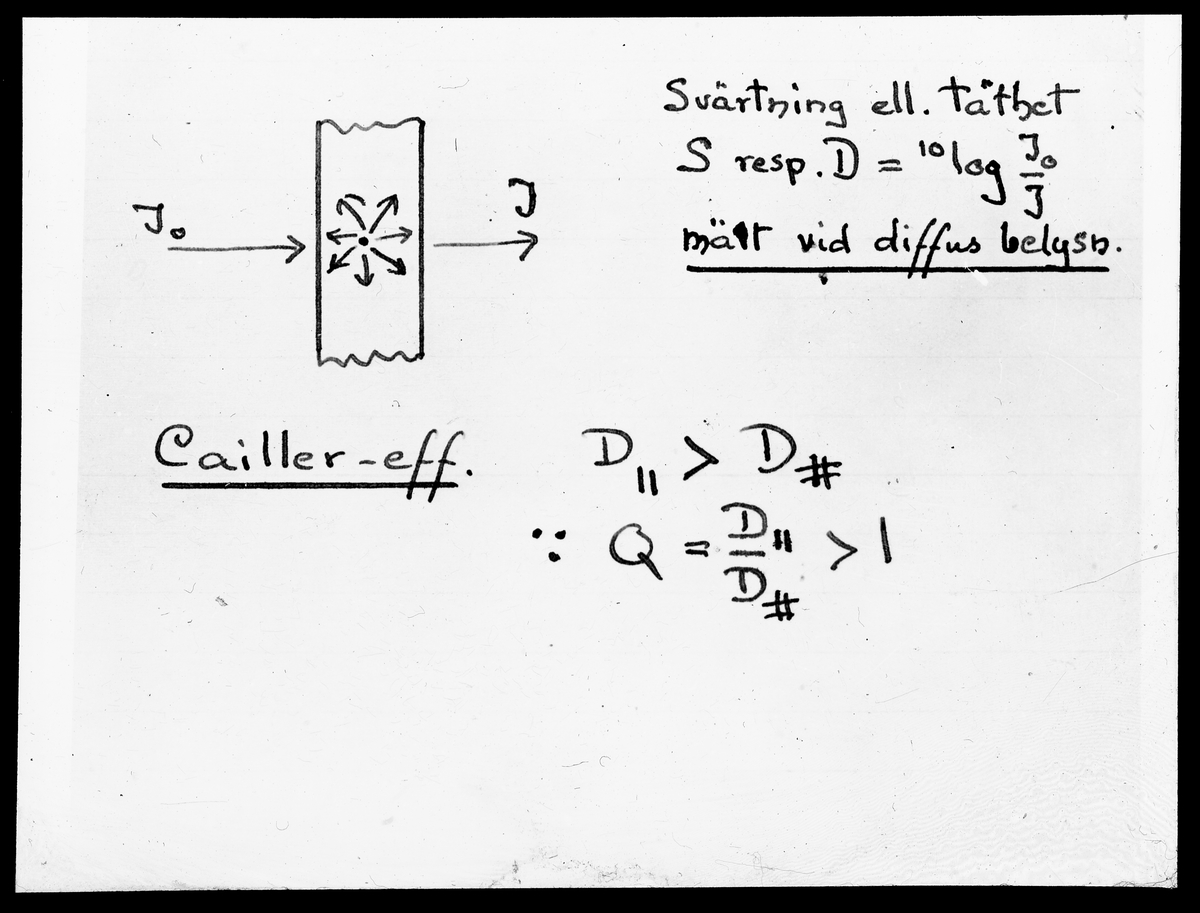 Svärtning ell. täthet
S resp. D = ¹⁰log J₀/J
mätt vid diffus belysn.
J₀
J
Cailler-eff.
D∥ > D#
∵ Q = D∥/D# > 1